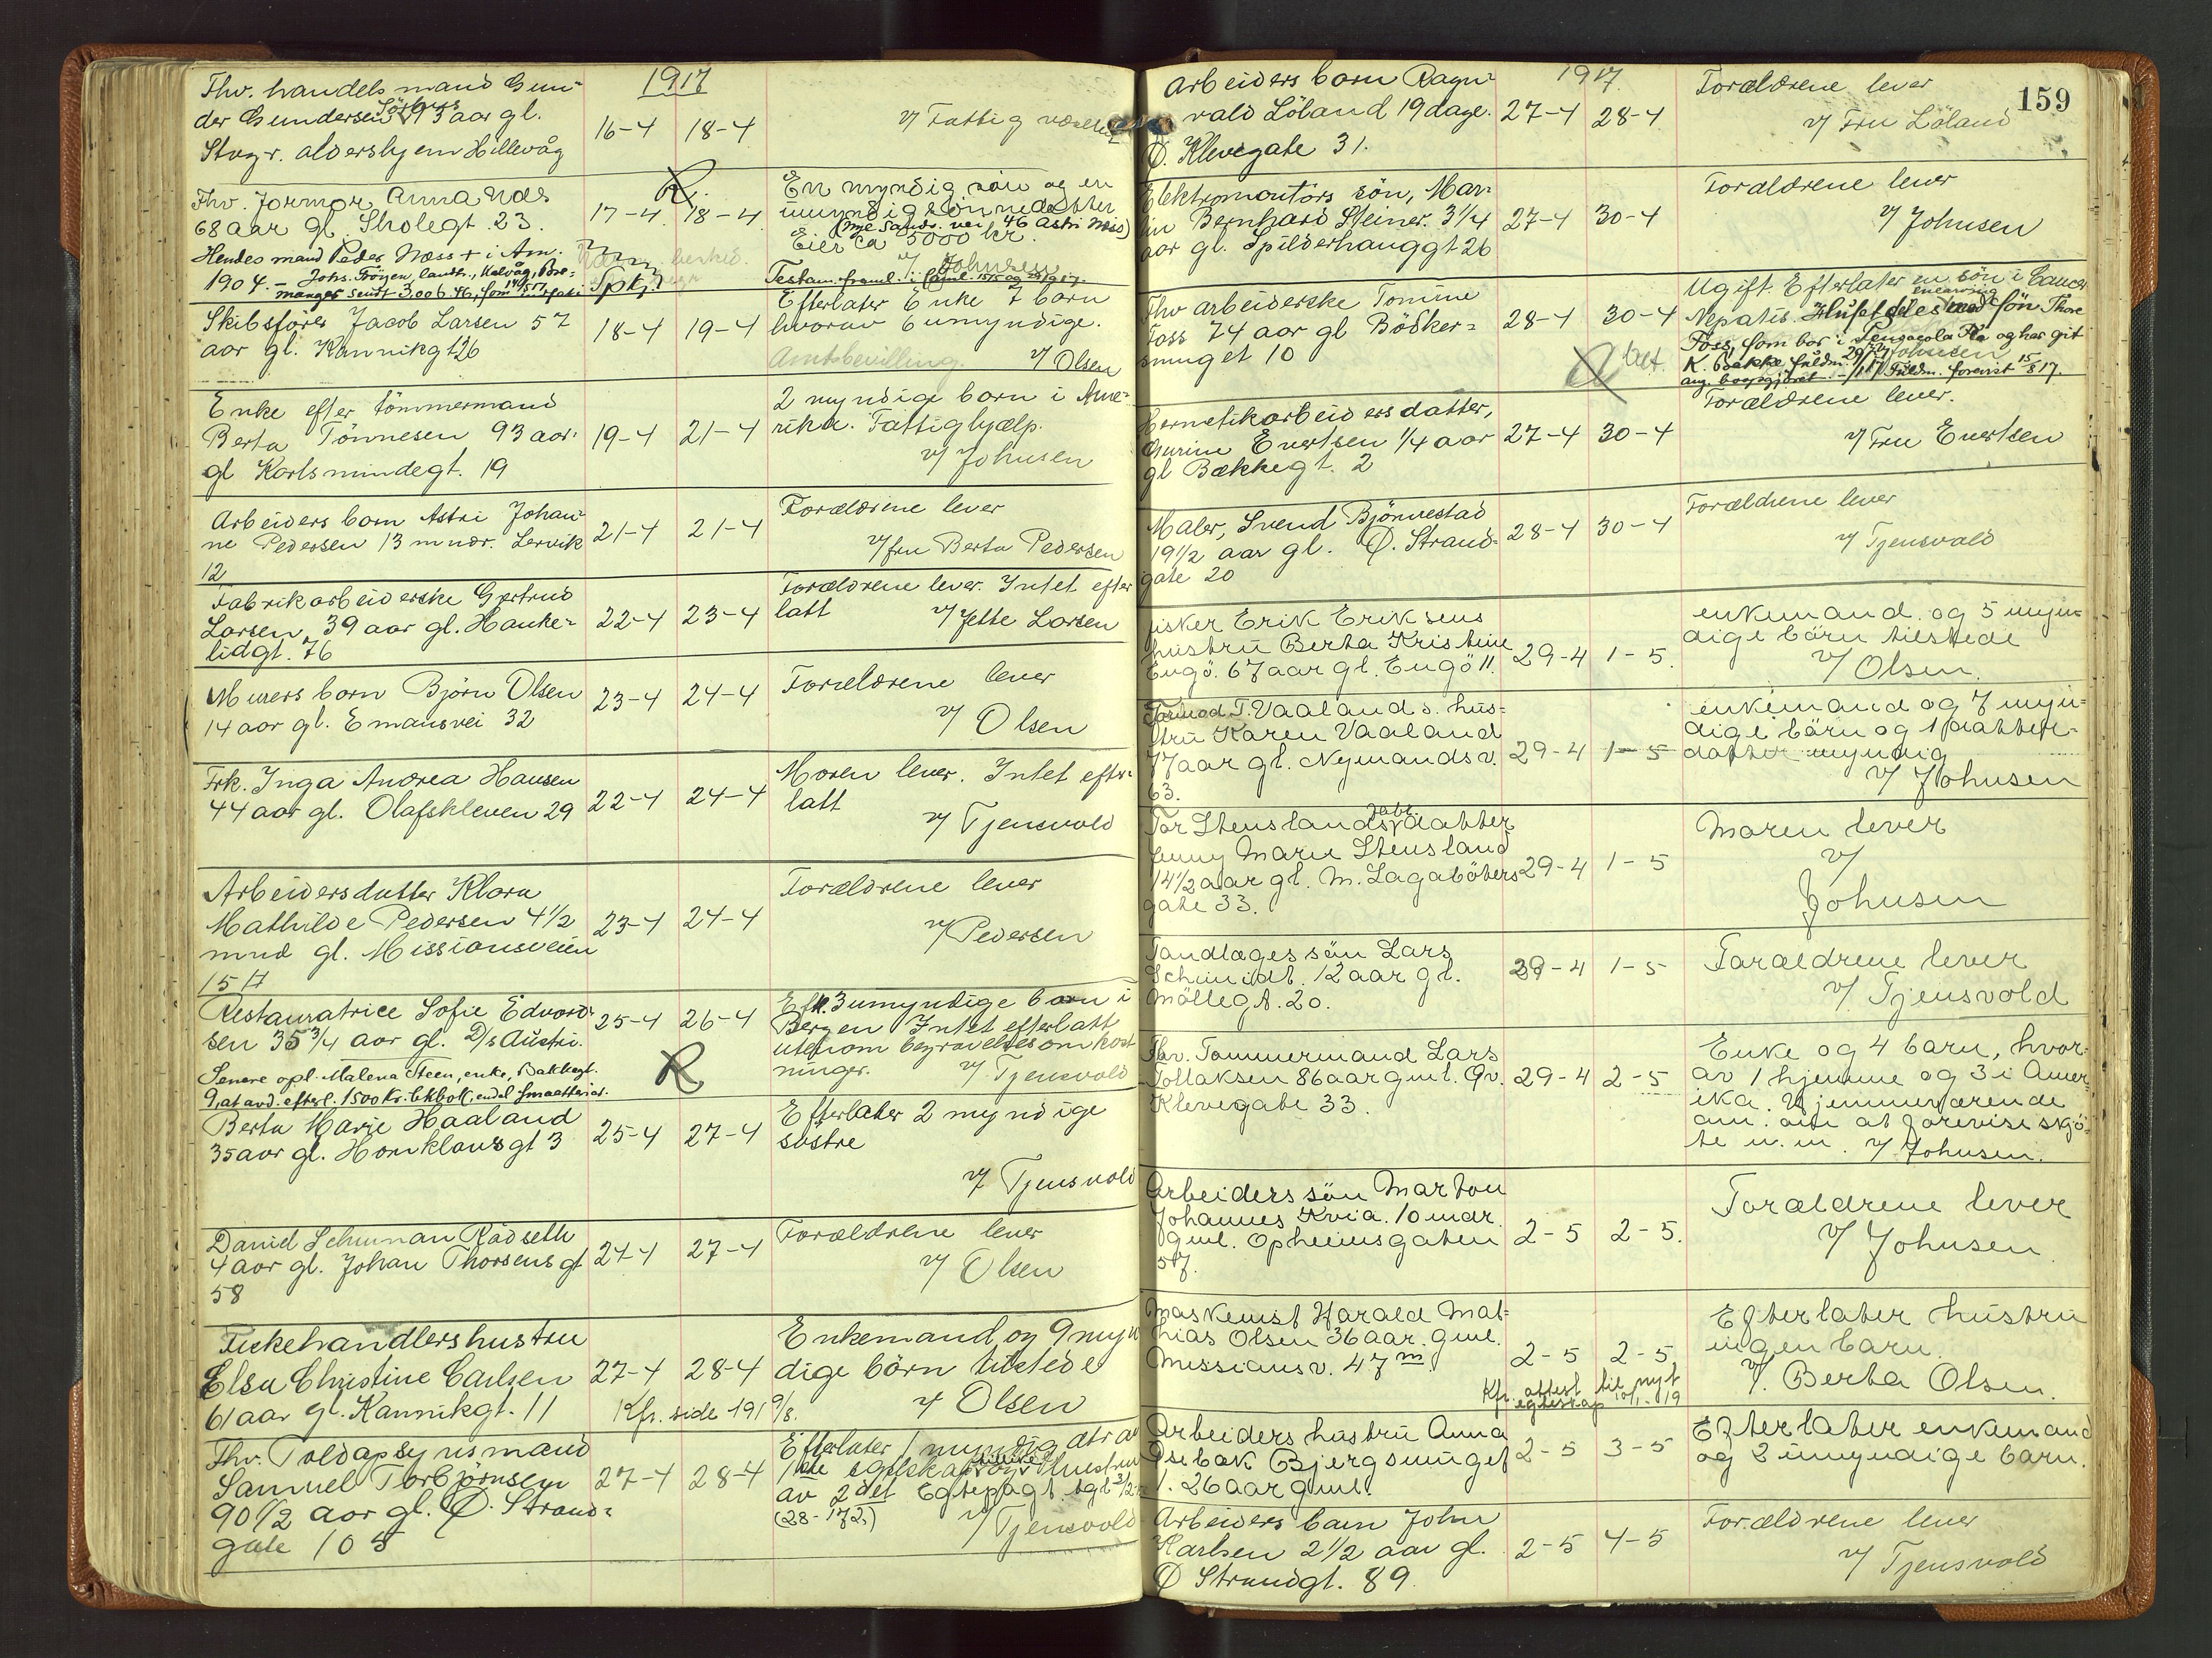 1917
Thv. handelsmand Gun-
der Gundersen Sörhus 93 aar gl.
Stvgr. aldershjem Hillevåg
16-4 18-4
v/ Fattigvæsenet
Thv. Jormor Anna Næs
68 aar gl. Skolegt. 23.
Hendes mand Peder Næss + i Am.
1904.
17-4 18-4
En myndig sön og en
umyndig sönnedatter
Eier ca 5000 kr.
v/ Johnsen
Skibsförer Jacob Larsen 57
aar gl. Kannikgt 26
18-4 19-4
Efterlater Enke 7 børn
hvorav 6 umyndige.
Amtsbevilling. v/ Olsen
Enke efter tömmermand
Berta Tönnesen 93 aar
gl Karlsmindegt. 19
19-4 21-4
2 myndige børn i Ame-
rika. Fattighjælp.
v/ Johnsen
Arbeiders barn Astri Johan-
ne Pedersen 13 mndr. Lervik
12
21-4 21-4
Forældrene lever
v/ fru Berta Pedersen
Fabrikarbeiderske Gertrud
Larsen, 39 aar gl. Hauke-
lidgt. 76
22-4 23-4
Forældrene lever. Intet efter
latt v/ Jette Larsen
Murers barn Björn Olsen
14 aar gl. Emausvei 32
23-4 24-4
Forældrene lever
v/ Olsen
Frk. Inga Andrea Hansen
44 aar gl. Olafskleven 29
22-4 24-4
Moren lever. Intet efter-
latt
v/ Tjensvold
Arbeidersdatter Klara
Mathilde Pedersen 4 1/2
mnd gl. Missionsveien
15 H
23-4 24-4
Forældrene lever
v/ Pedersen
Restauratrice Sofie Edvard-
sen 35 3/4 aar gl. D/s Austri.
Senere opl. Malena Steen, enke, Bakkegt.
25-4 26-4
Eft. 3 umyndige barn i
Bergen Intet efterlatt
utenom begravelsesomkost
ninger. v/ Tjensvold
Berta Marie Haaland
35 aar gl. Hornklausgt 3
25-4 27-4
Efterlater 2 myndige
söstre
v/ Tjensvold
Daniel Schuman Rödseth
4 aar gl. Johan Thorsensgt
58
24-4 27-4
Forældrene lever
v/ Olsen
Fiskehandlershustru
Elsa Christine Carlsen
61 aar gl. Kannikgt. 11
27-4 28-4
Kfr. side 191
Enkemand og 9 myn
dige börn tilstede
v/ Olsen
Thv. Toldopsynsmand
Samuel Torbjörnsen
90 1/2 aar gl. Ø. Strand-
gate 105
27-4 28-4
Efterlater 1 myndig dtr av
1ste egteskap og hustru
av 2det Egtepagt tgl
(28-172)
v/ Tjensvold
159
1917.
Arbeiders barn Ragn-
vald Löland 19 dage.
Ø. Klevegate 31.
27-4 28-4
Forældrene lever
v/ Fru Löland
Elektromontörs sön, Mar-
tin Bernhard Steiner. 3 1/4
aar gl. Spilderhauggt 26
27-4 30-4
Forældrene lever
v/ Johnsen
Thv arbeiderske Tomine
Foss 74 aar gl Bödker-
smuget 10
28-4 30-4
Ugift. Efterlater en sön i
Hermetikarbeidersdatter,
Gurine Evertsen 1/4 aar
gl Bækkegt. 2
27-4 30-4
Forældrene lever.
v/ Fru Evertsen
Maler, Svend Bjönnestad
19 1/2 aar gl. Ø. Strand-
gate 20
28-4 30-4
Forældrene lever
v/ Tjensvold
Fisker Erik Eriksens
hustru Berta Kristine
Engö. 67 aar gl. Engö 11.
29-4 1-5.
enkemand og 5 myn-
dige börn tilstede
v/ Olsen.
Formod T. Vaalands hus-
tru Karen Vaaland
77 aar gl. Nymandsv.
63.
29-4 1-5
enkemand og 7 myn-
dige börn og 1 datter-
datter myndig
v/ Johnsen
Tor Stenslands datter
Jenny Marie Stensland
14 1/2 aar gl. M. Lagabøters
gate 33.
29-4 1-5
Moren lever
v/
Johnsen
Tandlægessön Lars
Schmidt. 12 aar gl.
Möllegt. 20.
29-4 1-5
Forældrene lever
v/ Tjensvold
Thv. Tömmermand Lars
Tollaksen 86 aar gml. Øv.
Klevegate 33.
29-4 2-5
Enke og 4 barn, hvor-
av 1 hjemme og 3 i Amer-
ika. Hjemmeværende
anm. om at forevise skjö-
te m.m. v/ Johnsen.
Arbeiders sön Marton
Johannes Kvia. 10 mdr.
gml. Opheimsgaten
57.
2-5 2-5.
Forældrene lever
v/ Johnsen
Maskinist Harald Mat-
hias Olsen 36 aar. gml.
Missionsv. 47 m.
2-5 2-5
Kfr. attest til nyt
egteskap 10/1-19
Efterlater hustru
ingen barn.
v/ Berta Olsen.
Arbeiders hustru Anna
Osebak Bjergsmuget
1. 26 aar gml.
2-5 3-5
Efterlater enkemand
og 2 umyndige barn.
Arbeiders barn John
Karlsen 2 1/2 aar gl.
Ø Strandgt. 89
2-5 4-5
Forældrene lever
v/ Tjensvold